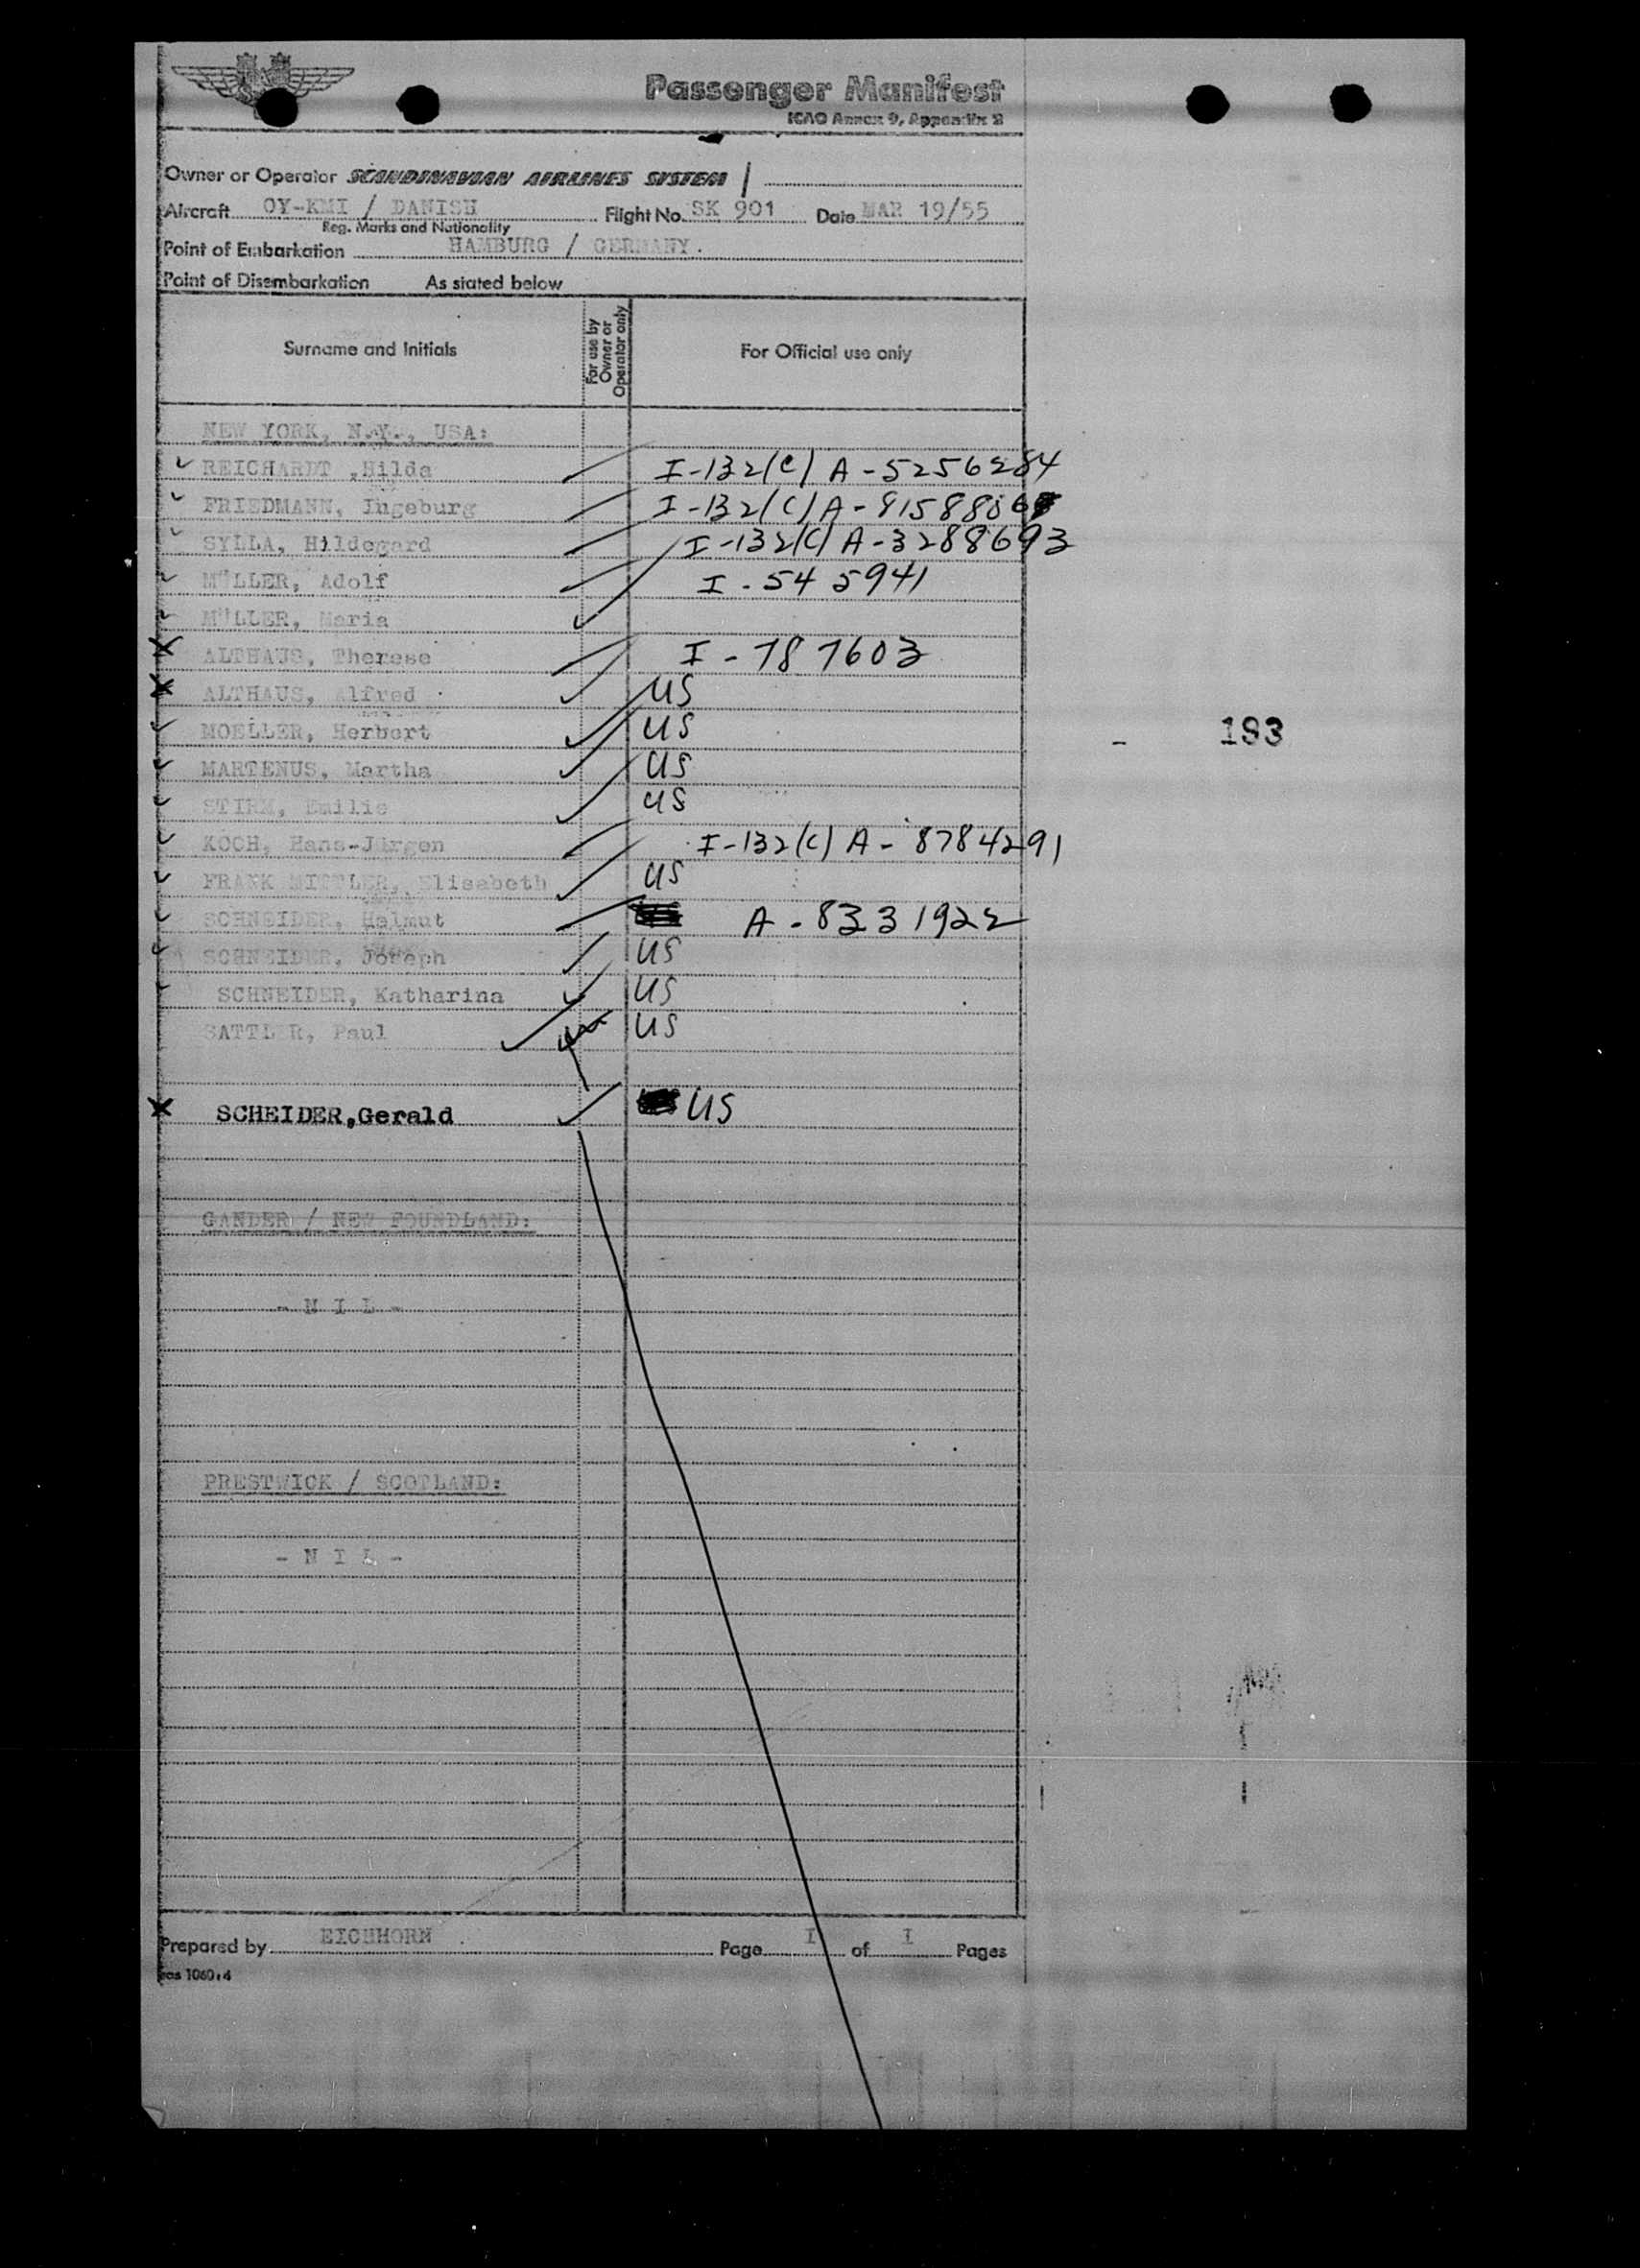 Passenger Manifest
ICAO Annex 9, Appendix 2
Owner or Operator SCANDINAVIAN AIRLINES SYSTEM
Aircraft OY-KMI / DANISH Flight No. SK 901 Date MAR 19/55
Reg. Marks and Nationality
Point of Embarkation HAMBURG / GERMANY.
Point of Disembarkation As stated below
Surname and Initials For use by Owner or Operator only For Official use only
NEW YORK, N.Y., USA:
REICHARDT ,Hilda I-132(C) A-5256284
FRIEDMANN, Ingeburg I-132(C) A-
SYLLA, Hildegard I-132(C) A-3288693
MÜLLER, Adolf I-545941
MÜLLER, Maria
ALTHAUS, Therese I-787603
ALTHAUS, Alfred US
MOELLER, Herbert US
MARTENUS, Martha US
STIRM, Emilie US
KOCH, Hans-Jürgen I-132(C) A-8784291
FRANK MITTLER, Elisabeth US
SCHNEIDER, Helmut A-8331922
SCHNEIDER, Joseph US
SCHNEIDER, Katharina US
SATTLER, Paul US
SCHEIDER,Gerald US
193
GANDER / NEW FOUNDLAND:
- N I L -
PRESTWICK / SCOTLAND:
- N I L -
Prepared by EICHHORN Page I of I Pages
sas 1060:4